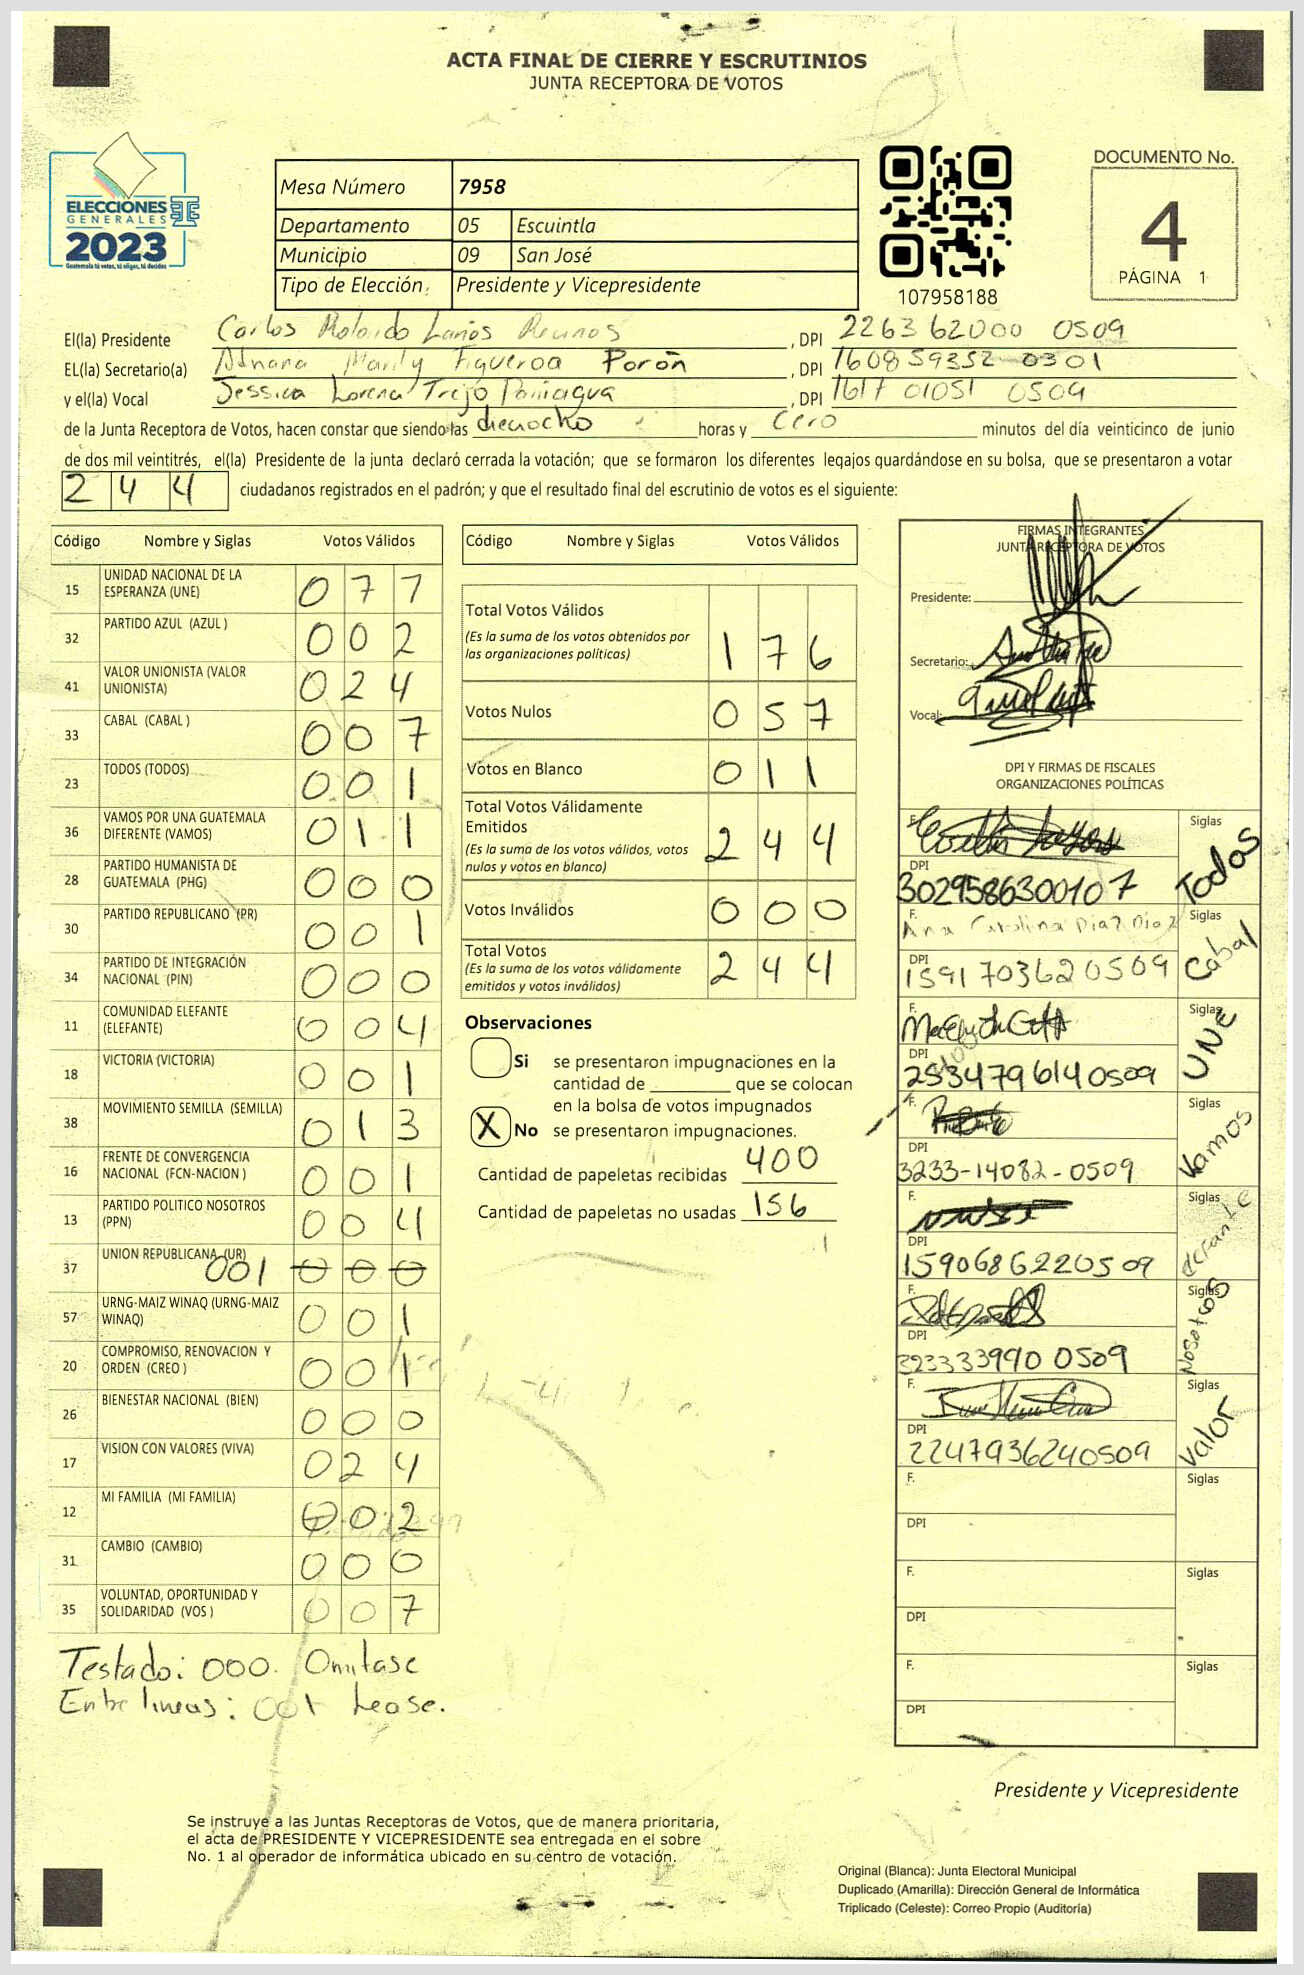 ACTA FINAL DE CIERRE Y ESCRUTINIOS
JUNTA RECEPTORA DE VOTOS
ELECCIONES
GENERALES
2023
Guatemala tú votas, tú eliges, tú decides
Mesa Número 7958
Departamento 05 Escuintla
Municipio 09 San José
Tipo de Elección: Presidente y Vicepresidente
107958188
DOCUMENTO No.
4
PÁGINA 1
El(la) Presidente Carlos Rolando Larios , DPI 2263 62000 0509
EL(la) Secretario(a) Marily Figueroa Porón , DPI 160859352 0301
y el(la) Vocal Jessica Lorena Trejo Paniagua , DPI 1617 01051 0509
de la Junta Receptora de Votos, hacen constar que siendo las dieciocho horas y cero minutos del día veinticinco de junio
de dos mil veintitrés, el(la) Presidente de la junta declaró cerrada la votación; que se formaron los diferentes legajos guardándose en su bolsa, que se presentaron a votar
244 ciudadanos registrados en el padrón; y que el resultado final del escrutinio de votos es el siguiente:
Código Nombre y Siglas Votos Válidos
15 UNIDAD NACIONAL DE LA ESPERANZA (UNE) 077
32 PARTIDO AZUL (AZUL ) 002
41 VALOR UNIONISTA (VALOR UNIONISTA) 024
33 CABAL (CABAL ) 007
23 TODOS (TODOS) 001
36 VAMOS POR UNA GUATEMALA DIFERENTE (VAMOS) 011
28 PARTIDO HUMANISTA DE GUATEMALA (PHG) 000
30 PARTIDO REPUBLICANO (PR) 001
34 PARTIDO DE INTEGRACIÓN NACIONAL (PIN) 000
11 COMUNIDAD ELEFANTE (ELEFANTE) 004
18 VICTORIA (VICTORIA) 001
38 MOVIMIENTO SEMILLA (SEMILLA) 013
16 FRENTE DE CONVERGENCIA NACIONAL (FCN-NACION ) 001
13 PARTIDO POLITICO NOSOTROS (PPN) 004
37 UNION REPUBLICANA (UR) 001 000
57 URNG-MAIZ WINAQ (URNG-MAIZ WINAQ) 001
20 COMPROMISO, RENOVACION Y ORDEN (CREO ) 001
26 BIENESTAR NACIONAL (BIEN) 000
17 VISION CON VALORES (VIVA) 024
12 MI FAMILIA (MI FAMILIA) 002
31 CAMBIO (CAMBIO) 000
35 VOLUNTAD, OPORTUNIDAD Y SOLIDARIDAD (VOS ) 007
Testado: 000. Omitase
Entre lineas: 001 Lease.
Código Nombre y Siglas Votos Válidos
Total Votos Válidos 176
(Es la suma de los votos obtenidos por
las organizaciones políticas)
Votos Nulos 057
Votos en Blanco 011
Total Votos Válidamente
Emitidos 244
(Es la suma de los votos válidos, votos
nulos y votos en blanco)
Votos Inválidos 000
Total Votos 244
(Es la suma de los votos válidamente
emitidos y votos inválidos)
Observaciones
Si se presentaron impugnaciones en la
cantidad de ________ que se colocan
en la bolsa de votos impugnados
X No se presentaron impugnaciones.
Cantidad de papeletas recibidas 400
Cantidad de papeletas no usadas 156
FIRMAS INTEGRANTES
JUNTA RECEPTORA DE VOTOS
Presidente:
Secretario:
Vocal:
DPI Y FIRMAS DE FISCALES
ORGANIZACIONES POLÍTICAS
F. Siglas Todos
DPI 3029586300107
F. Ana Carolina Diaz Diaz Siglas Cabal
DPI 1591703620509
F. Siglas UNE
DPI 2534796140509
F. Siglas Vamos
DPI 3233-14082-0509
F. Siglas
DPI 1590686220509
F. Siglas Nosotros
DPI 323333990 0509
F. Siglas Valor
DPI 2247936240509
F. Siglas
DPI
F. Siglas
DPI
F. Siglas
DPI
Presidente y Vicepresidente
Se instruye a las Juntas Receptoras de Votos, que de manera prioritaria,
el acta de PRESIDENTE Y VICEPRESIDENTE sea entregada en el sobre
No. 1 al operador de informática ubicado en su centro de votación.
Original (Blanca): Junta Electoral Municipal
Duplicado (Amarilla): Dirección General de Informática
Triplicado (Celeste): Correo Propio (Auditoría)